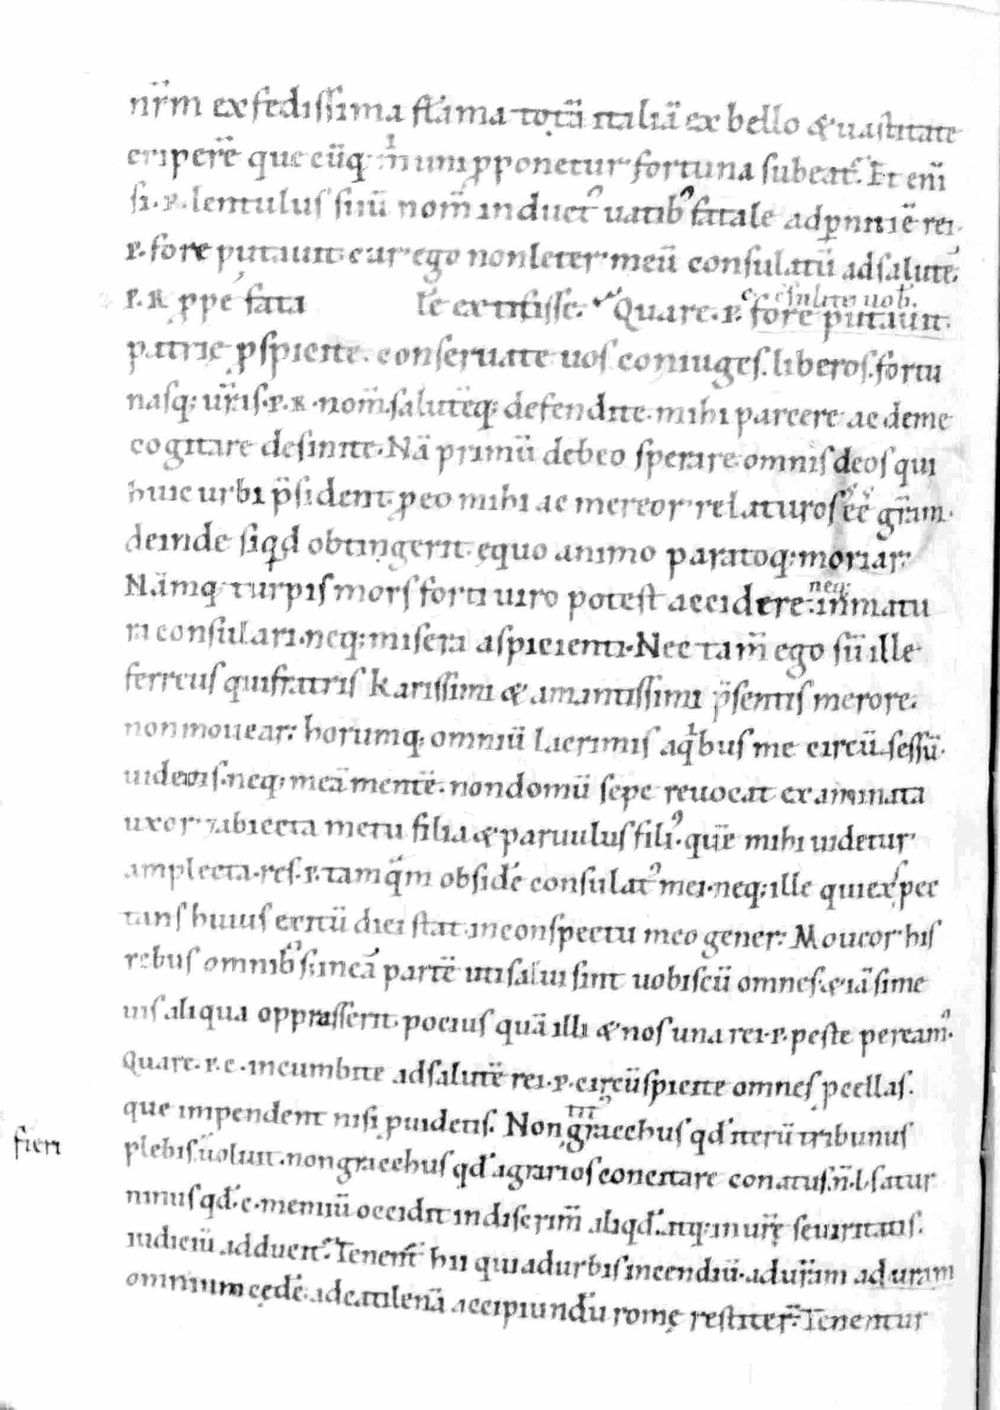 nr̄m ex fedissima flāma totā italiā ex bello & uastitate
eriperē que cūq; m̄ uni p̱poneturˑ fortuna subeatˀ. Et enī
si. P. lentulus suū nom̄ inductˀ uatibˀ fatale ad p̱nitiē rei.
P. fore putauit cur ego non leterˑ meū consulatū ad salutē.
P. R. p̱pe fata le extitisse. Quare. P. c̄ fore putaūt.
c̄sulite uob̄.
patrię p̱spicite. conseruate uos coniuges. liberos. fortu
nasq; ur̄is. P. R. nom̄. salutēq; defendite. mihi parcere ac deme
cogitare desinite. Nā primū debeo sperare omnis deos qui
huic urbi p̄sident. p̱ eo mihi ac mereorˑ relaturos ēē gr̄am.
deinde siqd̄ obtingerit. ęquo animo paratoq; moriarˑ
Nāmq; turpis mors forti uiro potest accidere. neq; inmatu
ra consulari. neq; misera aspicienti. Nec tam̄ ego sū ille
ferreus qui fratris karissimi & amantissimi p̄sentis merore.
non mouearˑ horumq; omniū lacrimis a qibus me circū sessū.
uidetis. neq; meā mentē. non domū sepe reuocat examinata
uxorˑ & abiecta metu filia & paruulus filiˀ. quē mihi uidetur
amplecta. res. P. tamqām obsidē consulatˀ mei. neq; ille qui exspec
tans huius exitū diei stat. in conspectu meo generˑ Moueorˑ his
rebus omnibˀ s; in eā partē uti salui sint uobiscū omnes. & iā si me
uis aliqua oppresserit. pocius quā illi & nos una rei. P. peste peream̄ˀ.
Quare. P. C. incumbite ad salutē rei. P. circūspicite omnes p̱cellas.
que impendent nisi p̱uidetis. Non tiˀ gracchus qd̄ iterū tribunus
fieri
plebis. uoluit. non gracchus qd̄ agrarios concitare conatus. n̄. l. satur
ninus qd̄. c. memiū occidit in discrim̄ aliqd̄. atq; in ur̄ę seuiritatis.
iudiciū adducitˀ. Tenen̄tˀ hii qui ad urbis incendiū. ad ur̄am ad uram
omnium cędē. ad catilenā accipiundū romę restiter̄. Tenentur